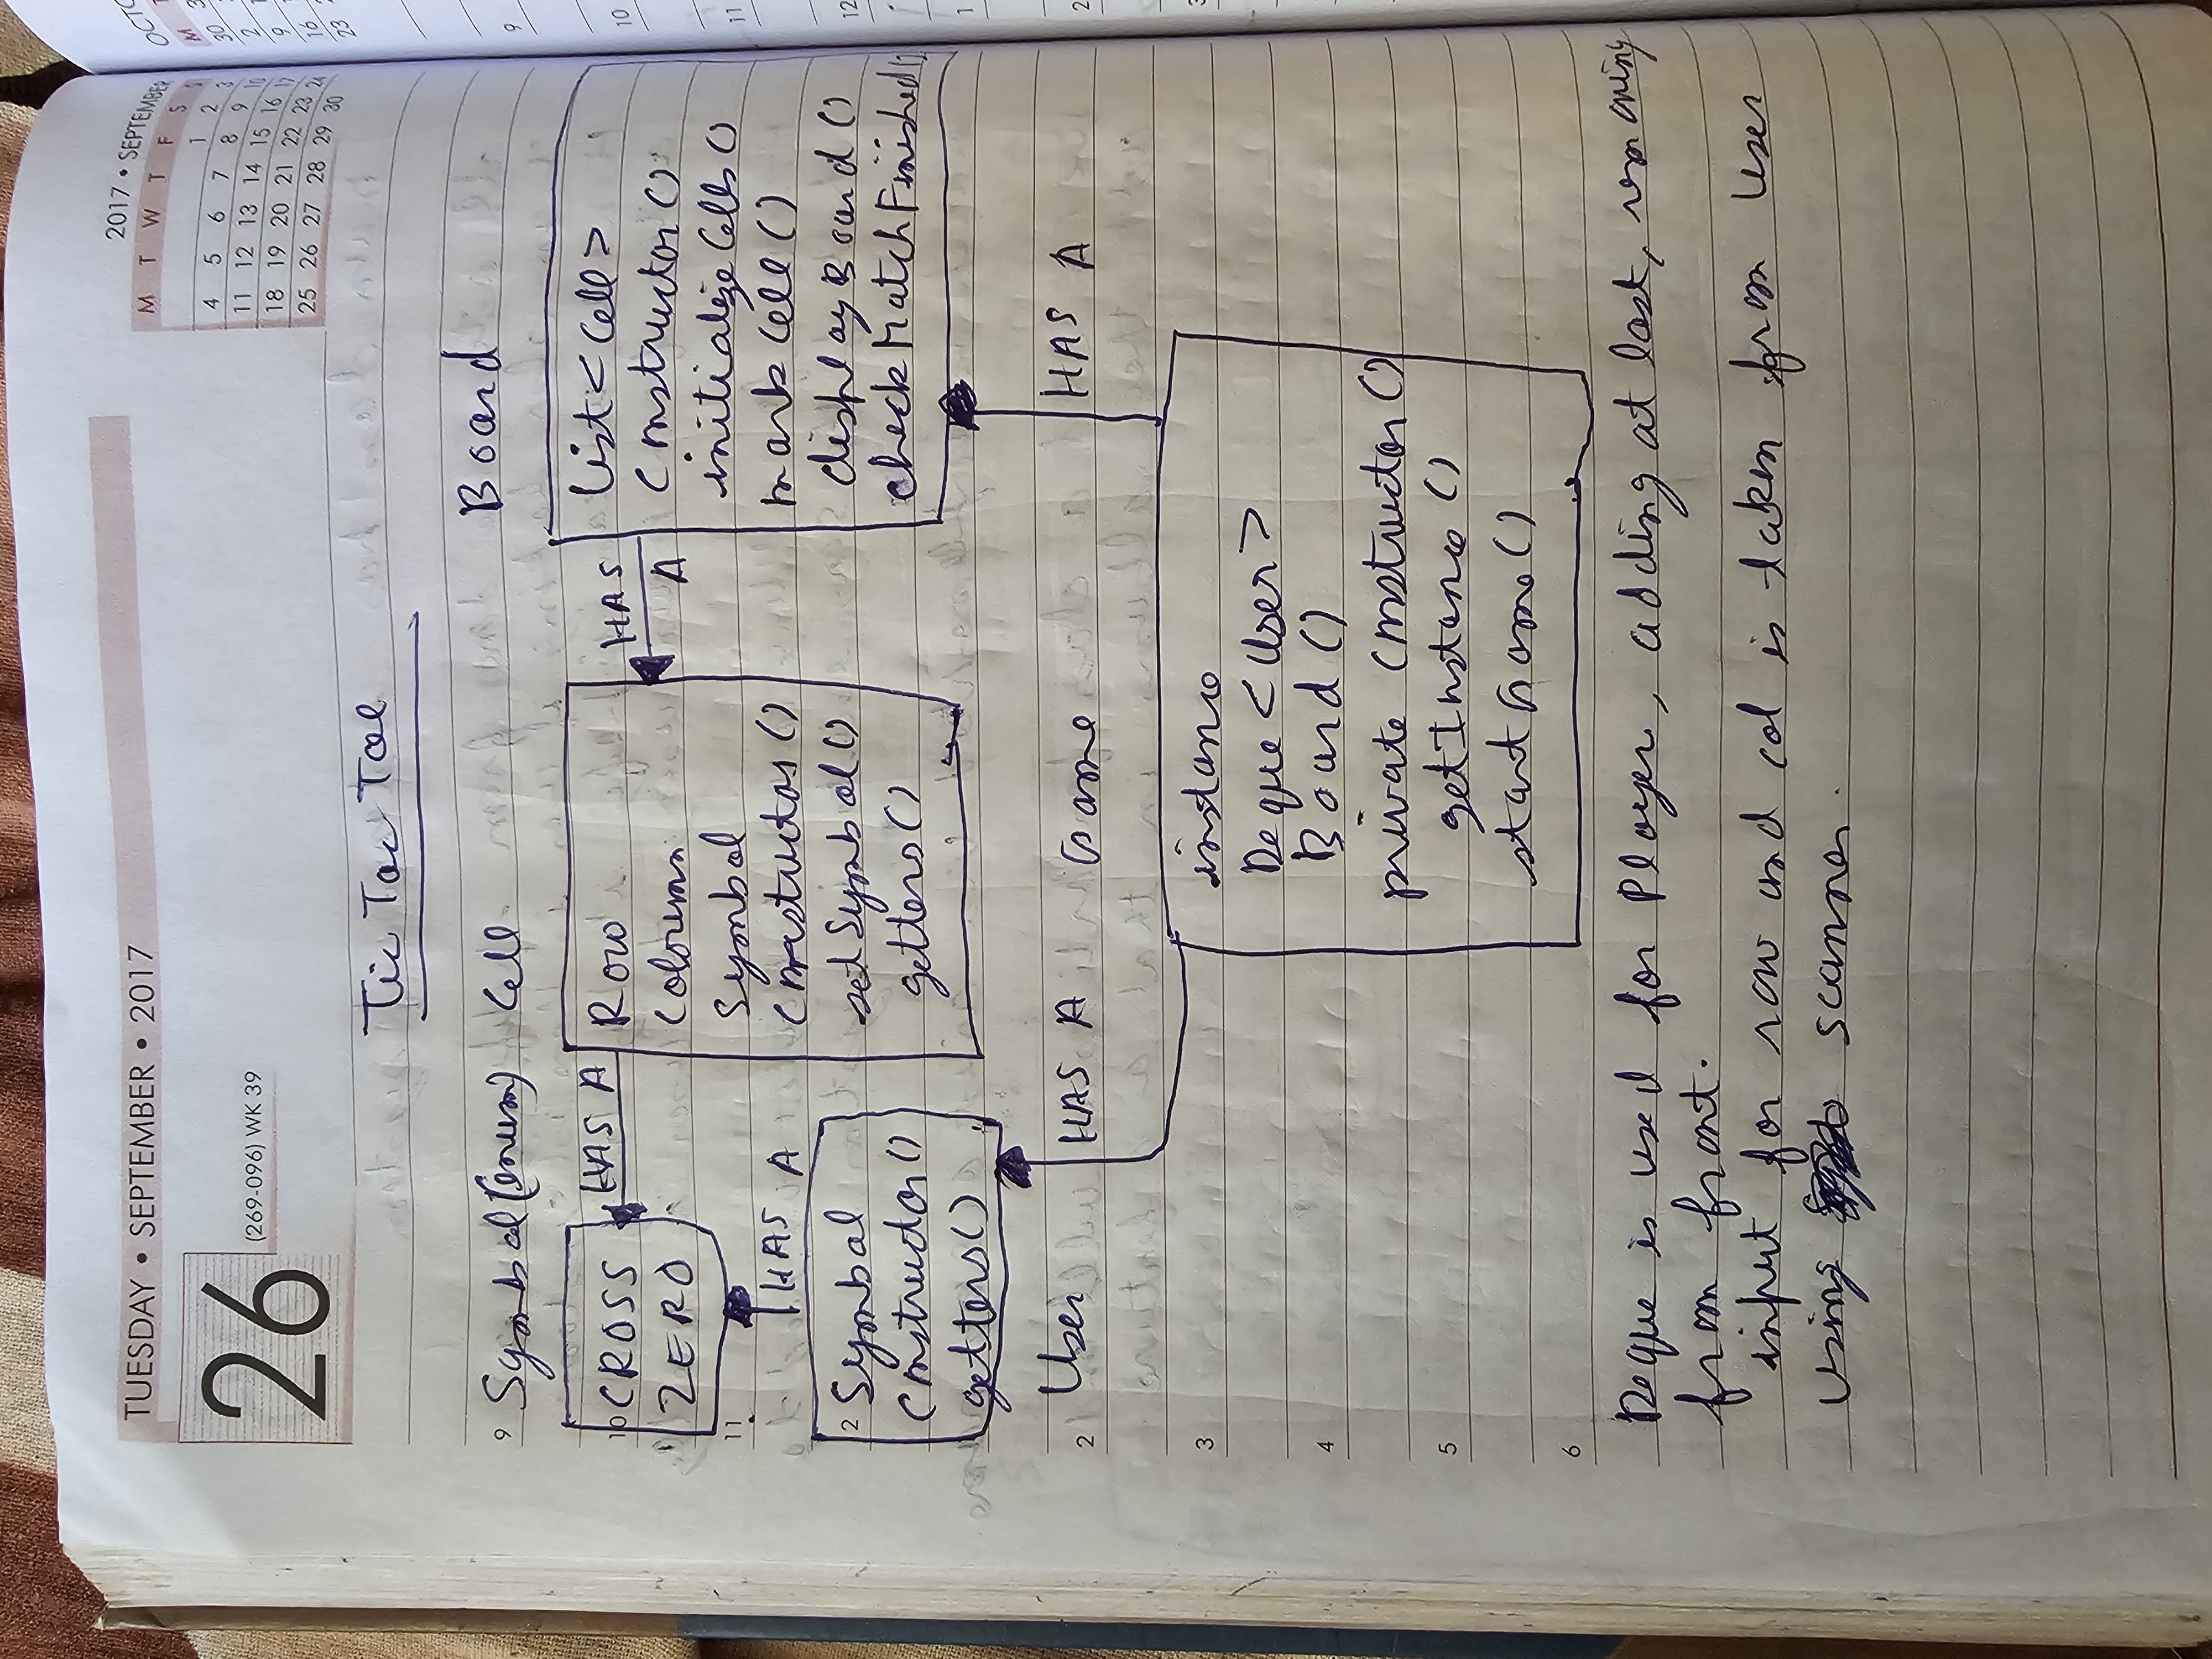 TUESDAY • SEPTEMBER • 2017
26
(269-096) WK 39
2017 • SEPTEMBER
M T W T F S S
1 2 3
4 5 6 7 8 9 10
11 12 13 14 15 16 17
18 19 20 21 22 23 24
25 26 27 28 29 30
Tic Tac Toe
Symbol(enum)
CROSS
ZERO
HAS A
Cell
Row
Column
Symbol
Constructor()
setSymbol()
getters()
HAS
A
Board
List<Cell>
Constructor()
initializeCells()
markCell()
displayBoard()
checkMatchFinished()
HAS A
Symbol
Constructor()
getters()
User
HAS A
Game
HAS A
instance
Deque<User>
Board()
private Constructor()
getInstance()
startGame()
Deque is used for Player, adding at last, removing
from front.
input for row and col is taken from User
using scanner.
9
10
11
12
2
3
4
5
6
OCTO
M
30
2
9
16
23
9
10
11
12
1
2